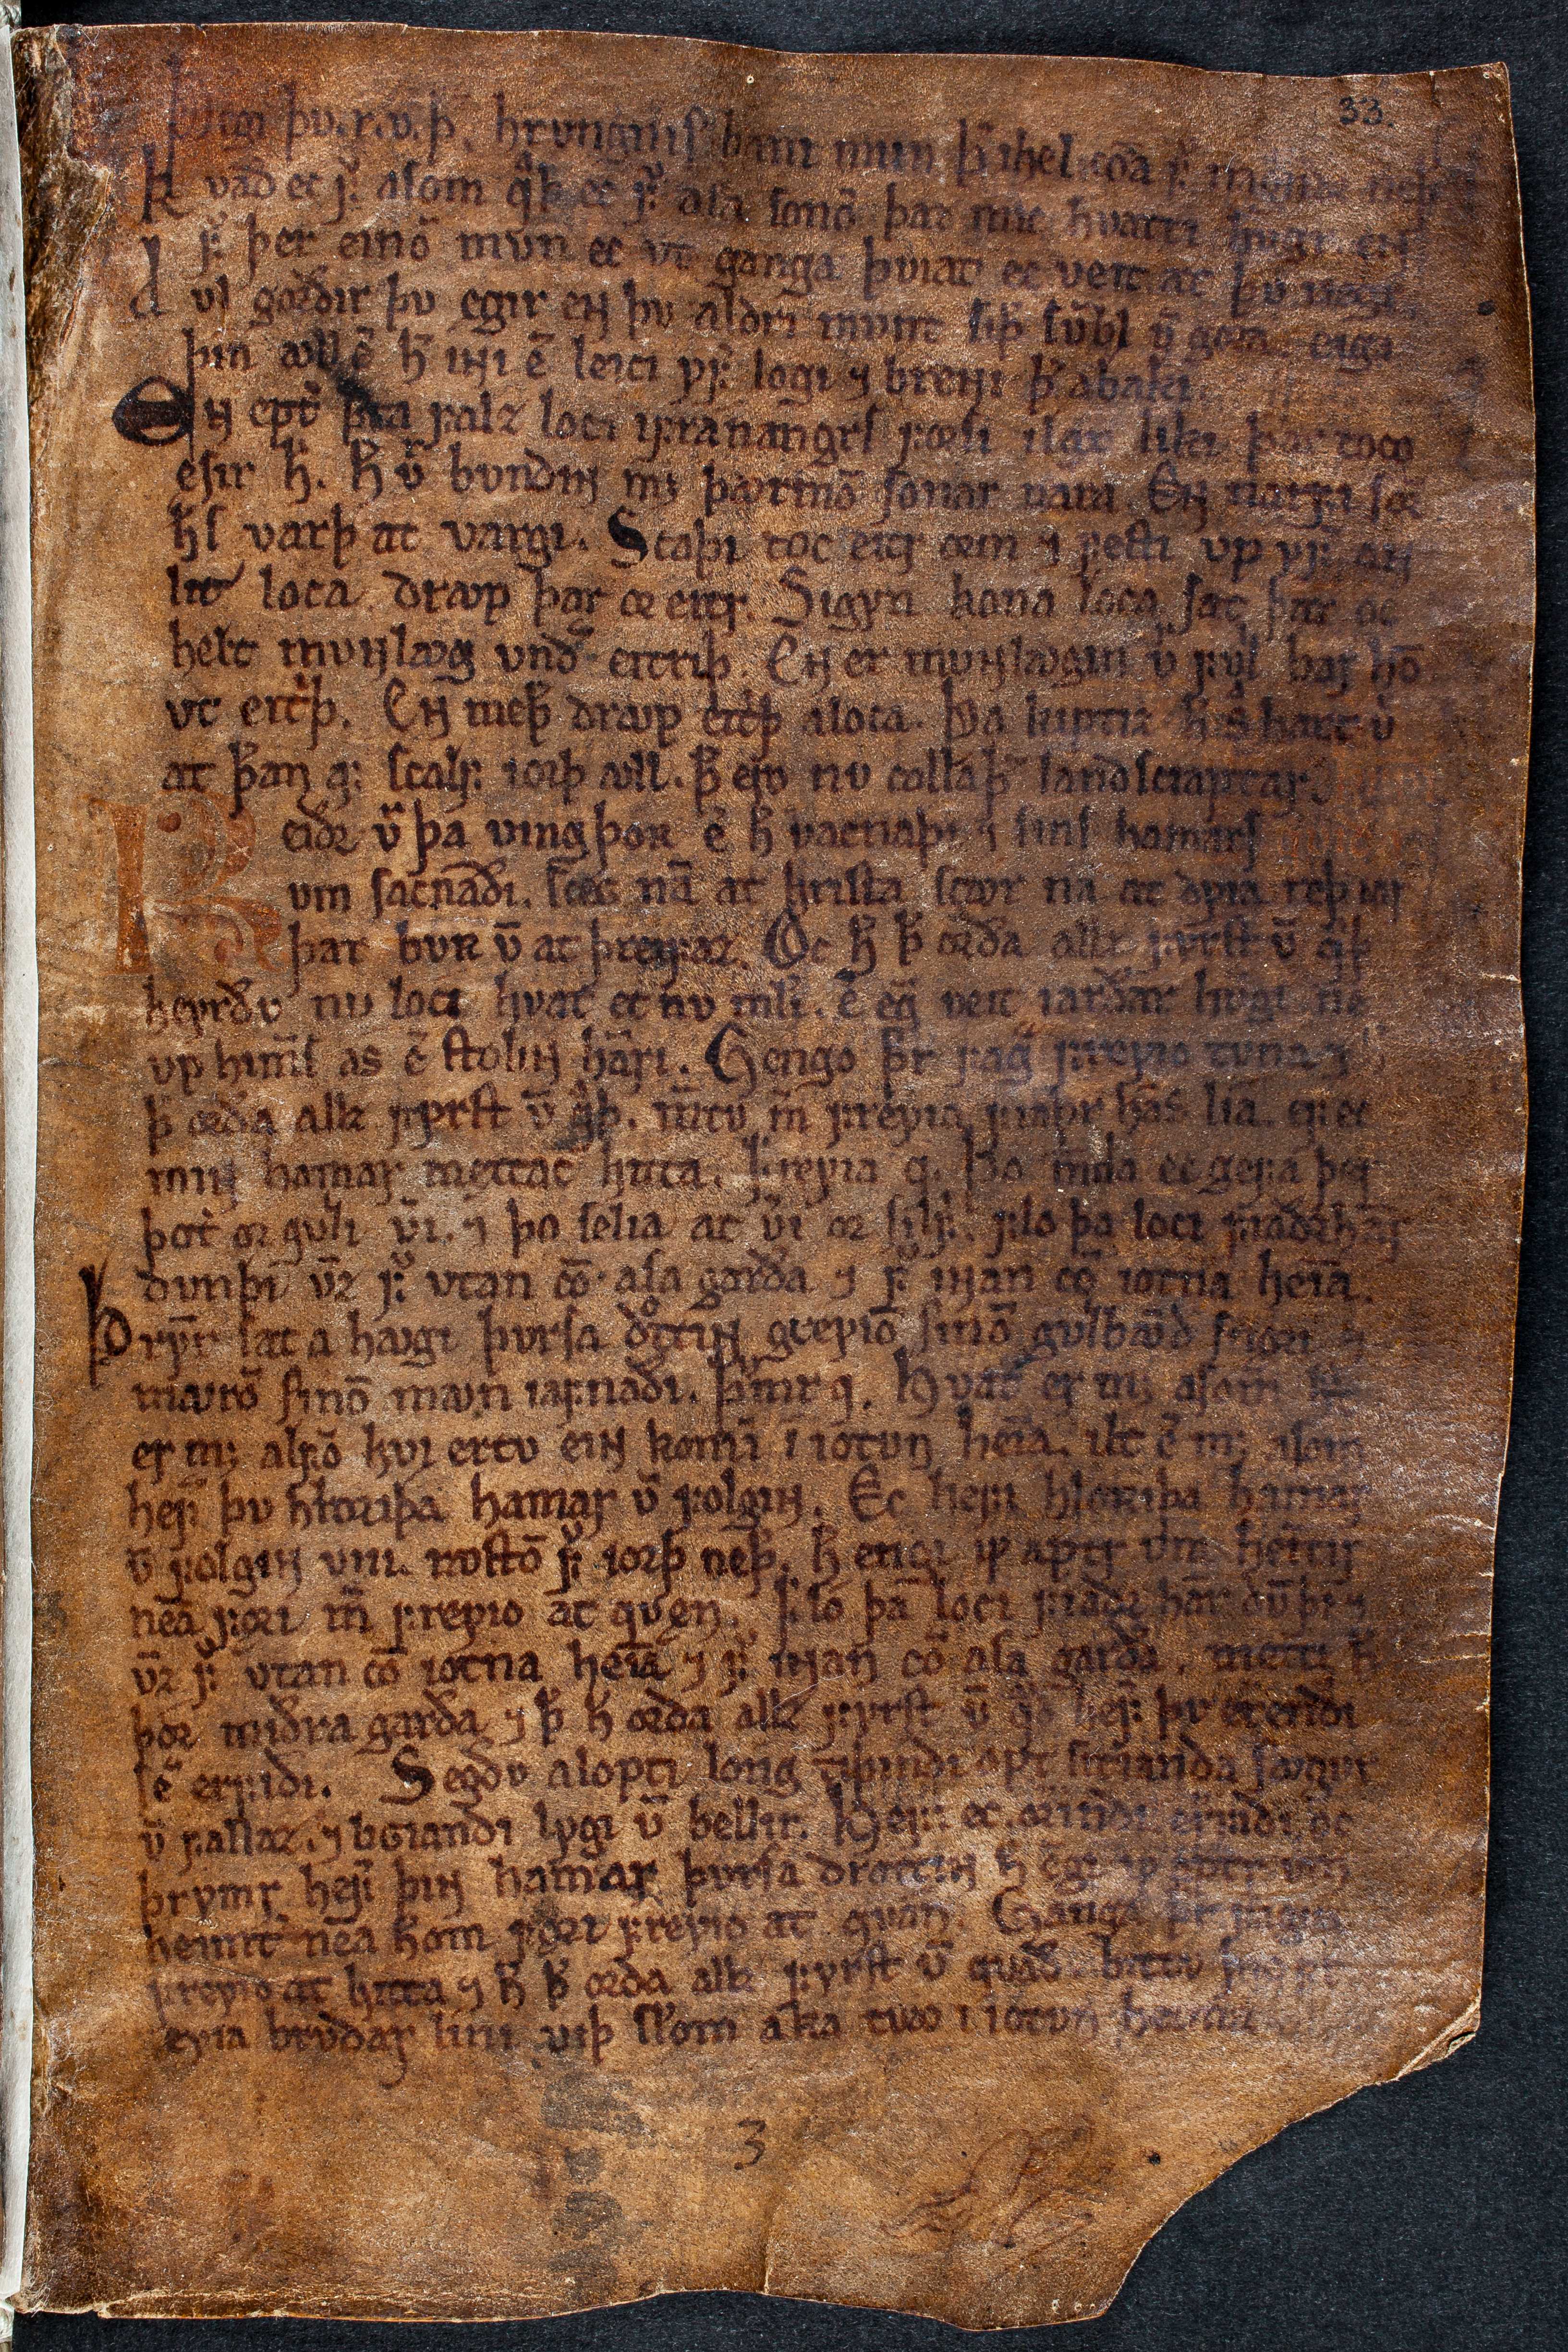 33.
þegi þv. r. v. þ. hrvngnis bani mun þ͛ ihel coa f͛ nágrindr neþ
k vað ec f͛ asom q̊þ ec f͛ asa sonō þaz mic hvatti hvgr en
f͛ þer einō mvn ec vt ganga þviat ec veit at þv vegr.
A vl gorðir þv egir en þv aldri mvnt siþ svbl v̄ gora. eiga
þin ꜹll ē h̄ ini ē leici yf͛ logi ⁊ breni þ͛ abaki.
En ept͛ þta falz loci ifrananɢrs forsi ilax liki. þar toco
esir h̄. h̄ v͛ bvndin mꝫ þormō sonar nara. En narfi sor
h̄s varþ at vargi. Scaþi toc eitr orm ⁊ festi vp yf͛ an
lit loca. drꜹp þar or eitr. Sigyn kona loca sat þar oc
helt mvnlꜹg vnd͛ eitriþ. En er mvnlꜹgin v͛ fvl bar hō
vt eitriþ. En meþ drꜹp eitriþ aloca. þa kiptiz h̄s hart v͛
at þ͛an af scalf iorþ ꜹll. þ͛ ero nv callaþ͛ landsciaptar.
R eiðr v͛ þa vingþoʀ ē h̄ vacnaþi ⁊ sins hamars
vm sacnaði. scegg nā at hrista scꜹr nā at dyia reþ iar
þar bvʀ v̄ at þreifaz. Oc h̄ þ͛ orða allz fyrst v̄ q̊þ
heyrðv nv loci hvat ec nv mli. ē eigi veit iarðar hvergi ne
vp himins as ē stolin hāri. Gengo þr fagra freyio tvna ⁊
þ͛ orða allz fyrst v̄ q̊þ. mvtv m̄ freyia fiaþrhās lia. ef ec
min hamar mættac hitta. freyia q. þo mvnda ec gefa þer
þot or gvlli v͛i. ⁊ þo selia at v͛i or silfri. flo þa loci fiaðrhar
dvnþi v͛z f͛ vtan cō asa garða ⁊ f͛ innan cō iotna heīa.
Þrymr sat a hꜹgi þvrsa drottin greyiō sinō gvlbꜹnd snori ⁊
mꜹrō sinō mꜹn iafnaði. þrymr q. Hvat er mꝫ asom hv
er mꝫ alfō hvi ertv ein komin i iotvn heīa. ilt ē mꝫ asom
hef͛ þv hloriþa hamar v̄ folgin. Ec hefi hloriþa hamar
v̄ folgin viii. rꜹstō f͛ iorþ neþ. h̄ engi ꝏaþr aptr vm heimtir
nēa fori m̄ freyio at qven. flo þa loci fiaðr har dvnþi
v͛z f͛ vtan cō iotna heīa ⁊ f͛ innan cō asa garða. mētti h̄
þor miðra garða ⁊ þ͛ h̄ orða allz fyrst v̄ q̊þ hef͛ þv erendi
sē erfiði. Segðv alopti long tiþindi opt sitianda sꜹgvr
v̄ fallaz. ⁊ ligiandi lygi v̄ bellir. Hefi ec erfiði ⁊ erindi oc
þrymr hefi þin hamar þvrsa drottin h̄ engi maþr aptr vm
heimt nēa hom fori freyio at qvan. Ganga þr fagra
freyio at hitta ⁊ h̄ þ͛ orða allz fyrst v̄ qvað bittv þic fr
eyia brvðar lini viþ scolom aka tvꜹ i iotvn heima
3